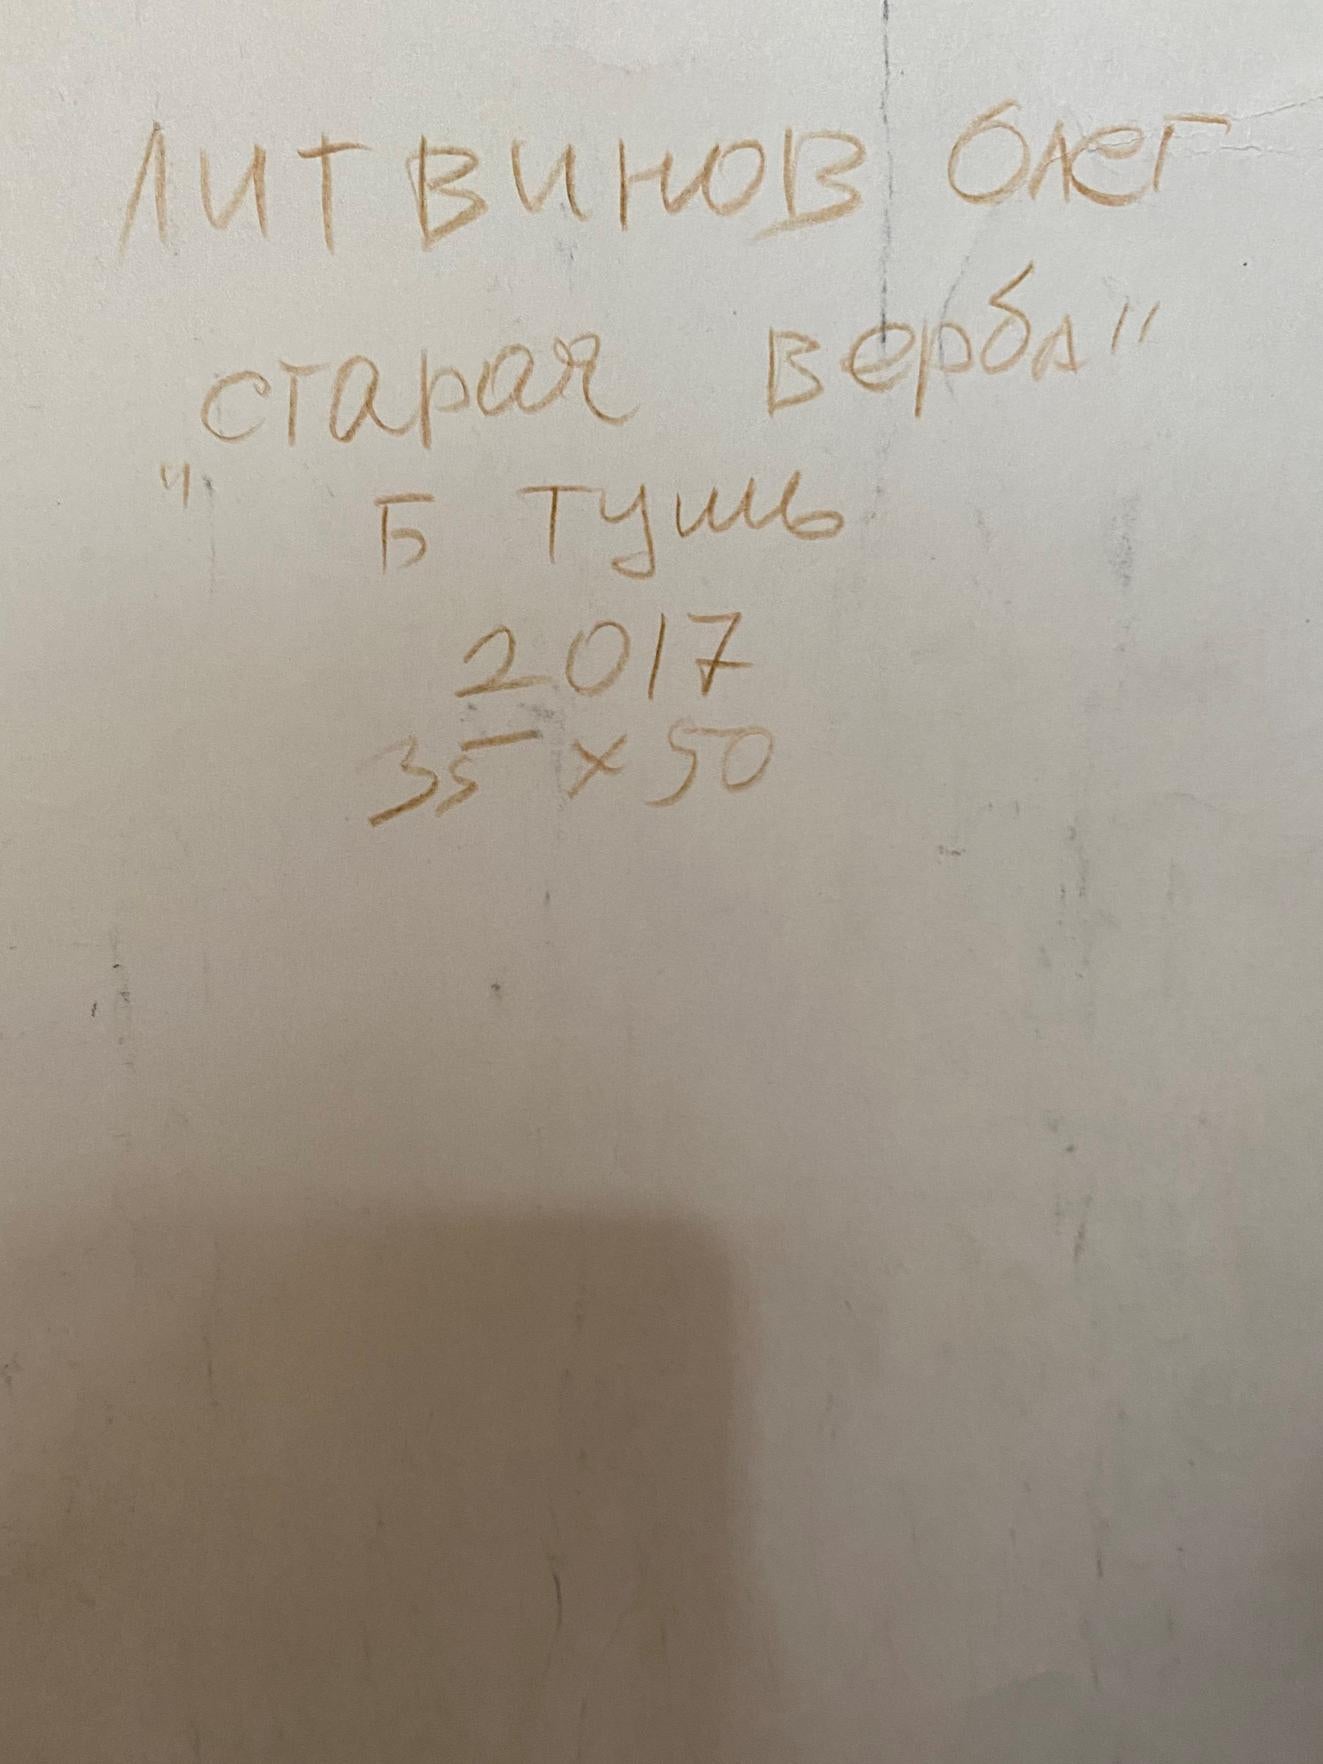 ЛИТВИНОВ ОЛЕГ
"старая верба"
Б тушь
2017
35 х 50